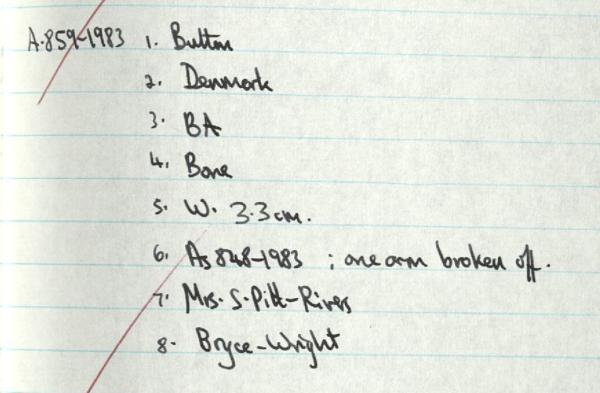 A.859-1983 1. Button
2. Denmark
3. BA
4. Bone
5. W. 3.3cm.
6. As 848-1983 ; one arm broken off.
7. Mrs. S. Pitt-Rivers
8. Bryce-Wright